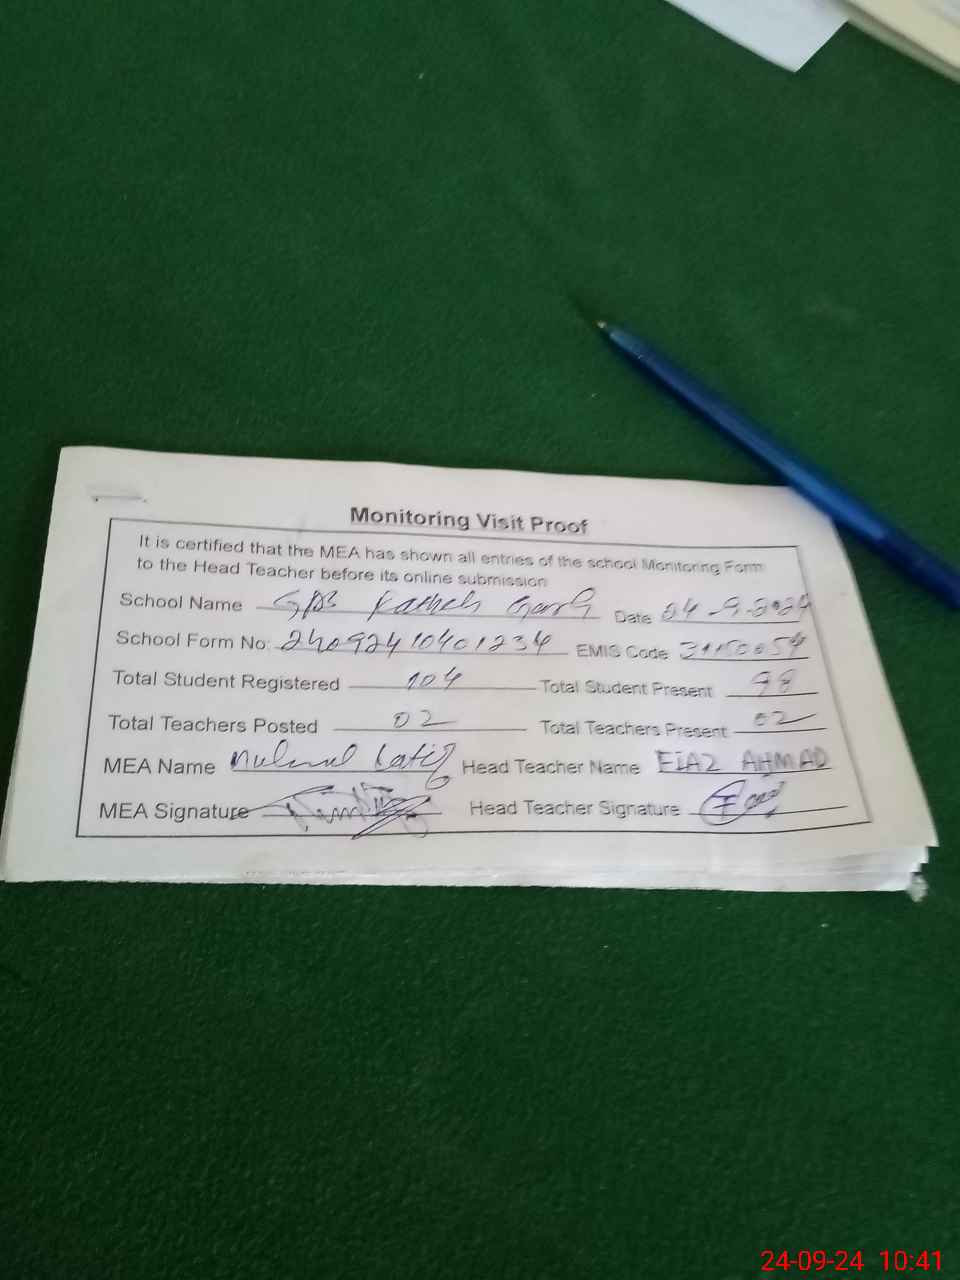 Monitoring Visit Proof
It is certified that the MEA has shown all entries of the school Monitoring Form
to the Head Teacher before its online submission
School Name GPS Garh Date 24-9-2024
School Form No: 24092410401234 EMIS Code
Total Student Registered 104 Total Student Present 98
Total Teachers Posted 02 Total Teachers Present 02
MEA Name Latif Head Teacher Name EIAZ AHMAD
MEA Signature Head Teacher Signature
24-09-24 10:41